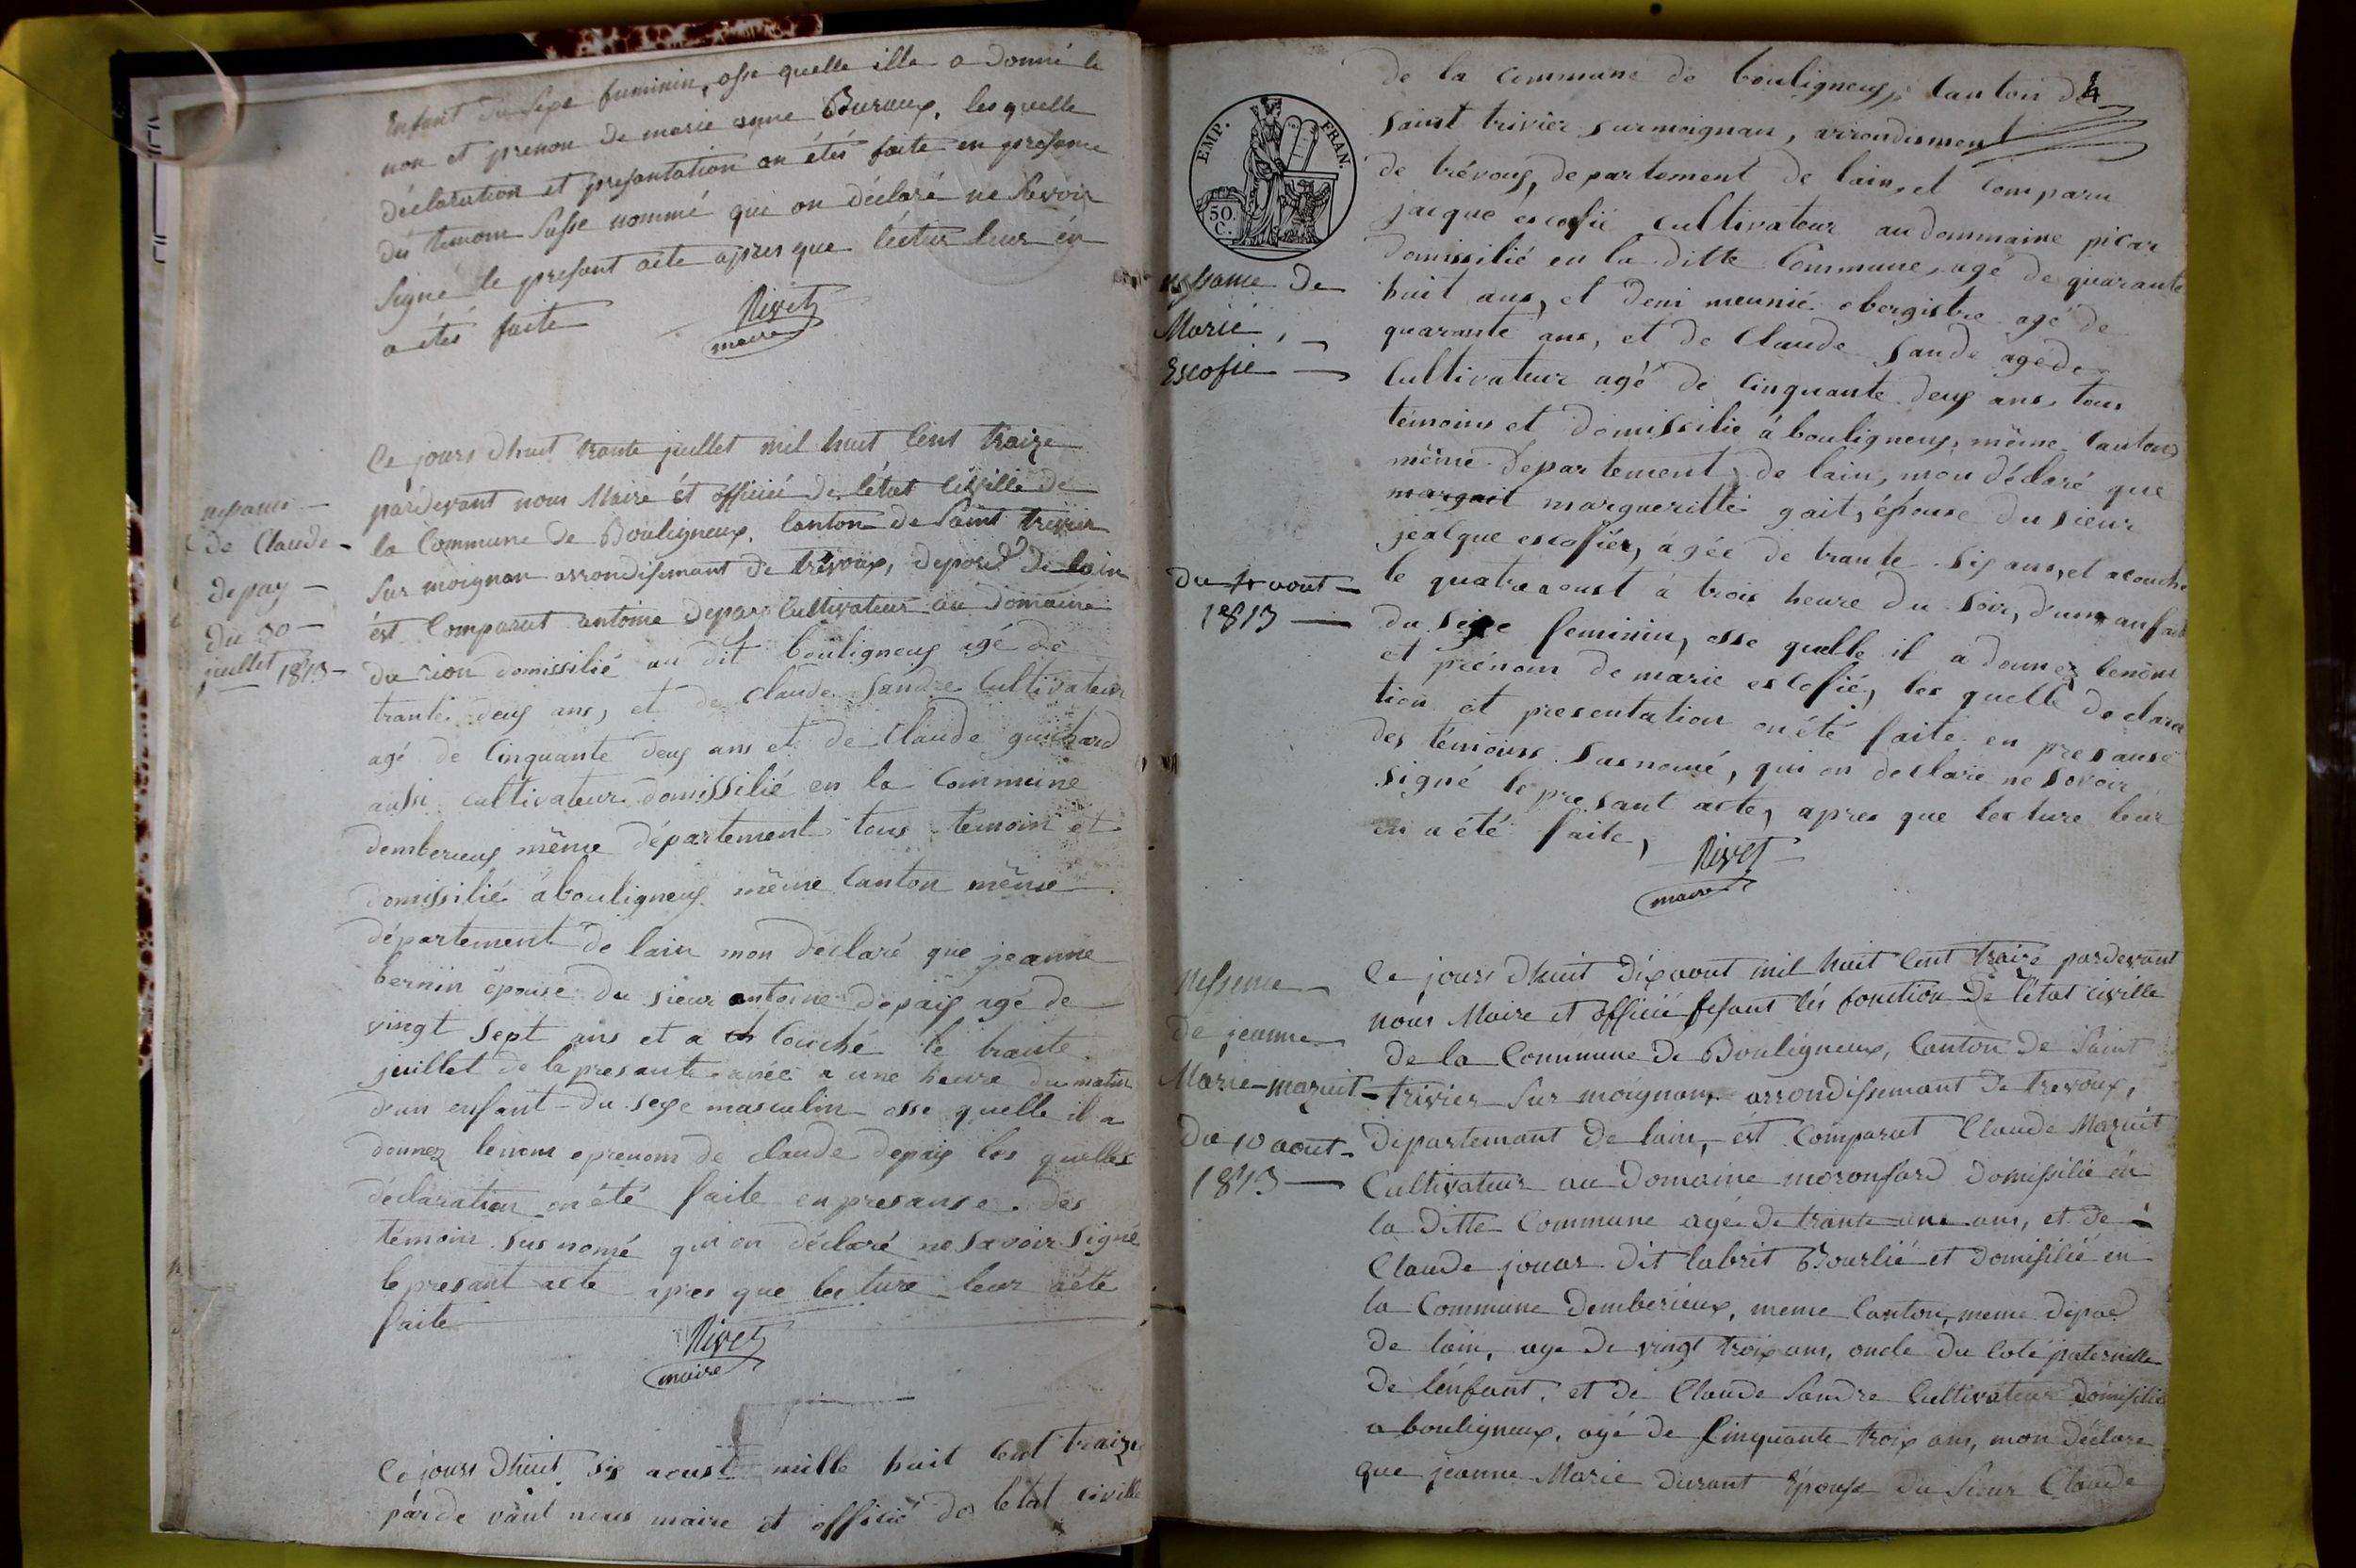 Enfant du sexe fuminin, osse quelle ille a donné le
non et prenon de marie anne Buraux, lesquelle
déclaration et presantation on étés faite en presance
dés temoin susse nommé qui on déclaré ne savoir
signé le presant acte apres que léctur leur én
a étés faite
Rivet
maire
nessance
de Claude
depay
du 30
juillet 1813
Ce jours dhuit trante juillet mil huit cent traize
pardevant nous Maire ét officié de létat civille de
la Commune de Bouligneux, canton de Saint trivier
sur moignan arrondisemant de trévoux, depard de lain
ést comparut antoine depax cultivateur au domaine
du rion domissilié au dit bouligneux agé de
trante deux ans, et de claude sandre cultivateur
agé de cinquante deux ans et de claude guichard
aussi cultivateur domissilié en la commune
demberieux même département tous temoin et
domissilié a bouligneux même canton même
département de lain mon déclaré que jeanne
bernin épouse du sieur antoine depaix agé de
vingt sept ans et a couché le trante
juillet de la presante anée a une heure du matin
d'un enfant du sexe masculin osse quelle il a
donnez lenom e prenom de claude depaix les quelles
déclaration on été faite en presanse des
témoin sus nomé qui on déclaré ne savoir signé
le presant acte apres que lecture leur aété
faite
Rivet
maire
Ce jours dhuit six aoust mille huit cent traize
par de vant nous maire et officié de létat civille
4
de la commune de bouligneux, canton de
saint trivier surmoignan, arrondisment
de trévoux, departement de lain, et comparu
EMP. FRAN.
50. C.
jacque escofié cultivateur au dommaine picar
domissilié en la ditte commune, agé de quarante
nessance de
Marie
Escofié
huit ans, et deni meunié obergistre agé de
quarante ans, et de claude sande agéde
cultivateur agé de cinquante deux ans, tous
témoins et domissilié á bouligneux, même canton
même département de lain, mon déclaré que
margait margueritte gait, épouse du sieur
jealque escofier, ágée de trante six ans, et acouche
du 4 aout
1813
le quatre aoust á trois heure du soir, d'un anfant
du sexe feminin, osse quelle il a donnez lenom
et prénom de marie escofié, les quelle declara
tion et presentation on été faite en presanse
des témoins susnomé, qui on declaré ne savoir
signé le presant acte, apres que lecture leur
en a été faite,
Rivet
maire
Nessence
de jeanne
Marie mazuit
du 10 aout
1813
Ce jours dhuit dix aout mil huit cent traize pardevant
nous Maire et officié fesant lés fonction de létat civille
de la Commune de Bouligneux, Canton de Saint
trivier sur moignan, arrondissemant de trevoux,
departemant de lain, ést comparut Claude Mazuit
Cultivateur au Domaine moronfard domissilié én
la ditte commune agé de trante une ans, et de
Claude jouar dit labrit Bourlié et domissilié en
la Commune demberieux, meme canton, meme depad
de lain, age de vingt troix ans, oncle du coté paternelle
de lénfant, et de Claude Sandre Cultivateur domissilié
a bouligneux, agé de cinquante troix ans, mon déclare
que jeanne Marie durant épouse du Sieur Claude